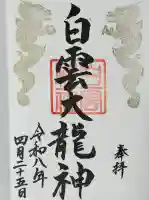 奉拝
白雲大龍神
令和八年
四月二十五日